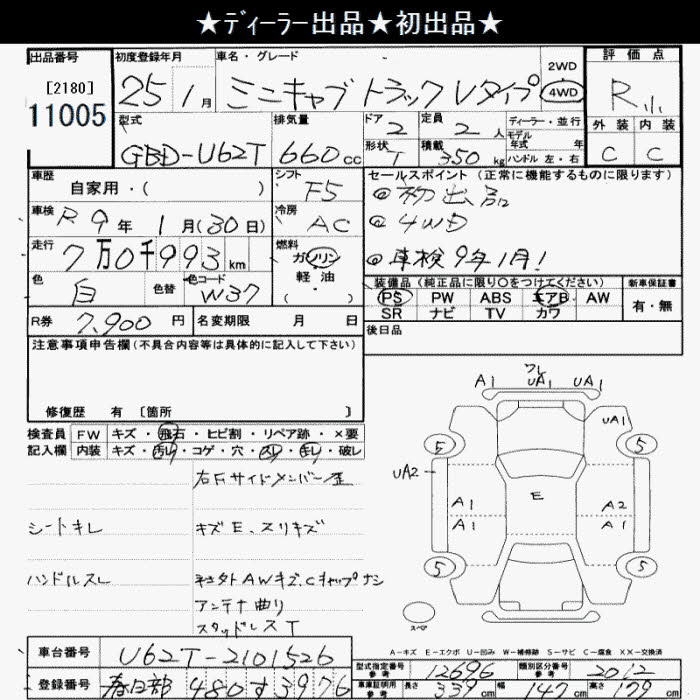 ★ディーラー出品★初出品★
出品番号
[2180]
11005
初度登録年月
25年 1月
車名・グレード
ミニキャブ トラック Vタイプ
2WD
4WD
評価点
R
外装 内装
C C
型式
GBD-U62T
排気量
660cc
ドア 2
定員 2人
形状 T
積載 350kg
ディーラー・並行
モデル年式 年
ハンドル 左・右
車歴
自家用・( )
シフト
F5
車検 R9年 1月(30日)
冷房
AC
走行 7万0千993km
燃料
ガソリン
軽油
( )
色 白
色替
色コード W37
R券 7,900円
名変期限 月 日
セールスポイント (正常に機能するものに限ります)
◎初出品
◎4WD
◎車検9年1月!
装備品 (純正品に限り○をつけてください)
PS PW ABS エアB AW
SR ナビ TV カワ
新車保証書
有・無
後日品
注意事項申告欄(不具合内容等は具体的に記入して下さい)
修復歴 有 [箇所 ]
検査員記入欄
FW キズ・飛石・ヒビ割・リペア跡・×要
内装 キズ・汚レ・コゲ・穴・スレ・キレ・破レ
右Fサイドメンバー歪
シートキレ
キズE、スリキズ
ハンドルスレ
AWキズ、Cキャップナシ
アンテナ曲り
スタッドレスT
A1 フレ UA1 UA1
UA1
5 5
UA2
E
A1 A2
A1 A1
5 5
スペア
A-キズ E-エクボ U-凹み W-補修跡 S-サビ C-腐食 XX-交換済
車台番号 U62T-2101526
登録番号 春日部 480 す 3976
型式指定番号 参考 12696
類別区分番号 参考 2012
車庫証明用 参考 長さ 339cm 幅 147cm 高さ 179cm